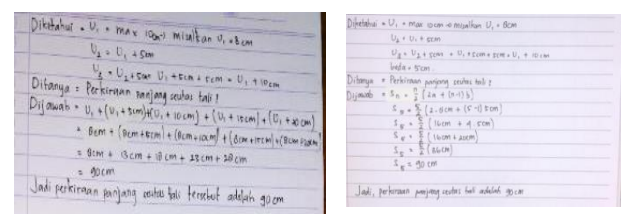 Diketahui = U₁ = max 10cm → misalkan U₁ = 8cm
U₂ = U₁ + 5cm
U₃ = U₂ + 5cm = U₁ + 5cm + 5cm = U₁ + 10cm
Ditanya = Perkiraan panjang seutas tali!
Dijawab = U₁ + (U₁ + 5cm) + (U₁ + 10cm) + (U₁ + 15cm) + (U₁ + 20cm)
= 8cm + (8cm + 5cm) + (8cm + 10cm) + (8cm + 15cm) + (8cm + 20cm)
= 8cm + 13cm + 18cm + 23cm + 28cm
= 90cm
Jadi perkiraan panjang seutas tali tersebut adalah 90cm
Diketahui = U₁ = max 10cm → misalkan U₁ = 8cm
U₂ = U₁ + 5cm
U₃ = U₂ + 5cm = U₁ + 5cm + 5cm = U₁ + 10cm
beda = 5cm
Ditanya = Perkiraan panjang seutas tali!
Dijawab = Sn = n/2 (2a + (n-1)b)
S₅ = 5/2 (2.8cm + (5-1)5cm)
S₅ = 5/2 (16cm + 4.5cm)
S₅ = 5/2 (16cm + 20cm)
S₅ = 5/2 (36cm)
S₅ = 90cm
Jadi, perkiraan panjang seutas tali adalah 90cm